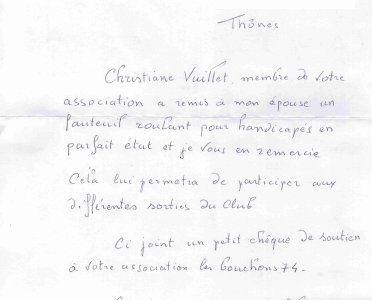 Thônes
Christiane Vuillet, membre de votre
association a remis à mon épouse un
fauteuil roulant pour handicapés en
parfait état et je vous en remercie
Celà lui permetra de participer aux
différentes sorties du Club
Ci joint un petit chèque de soutien
à votre association les bouchons 74.